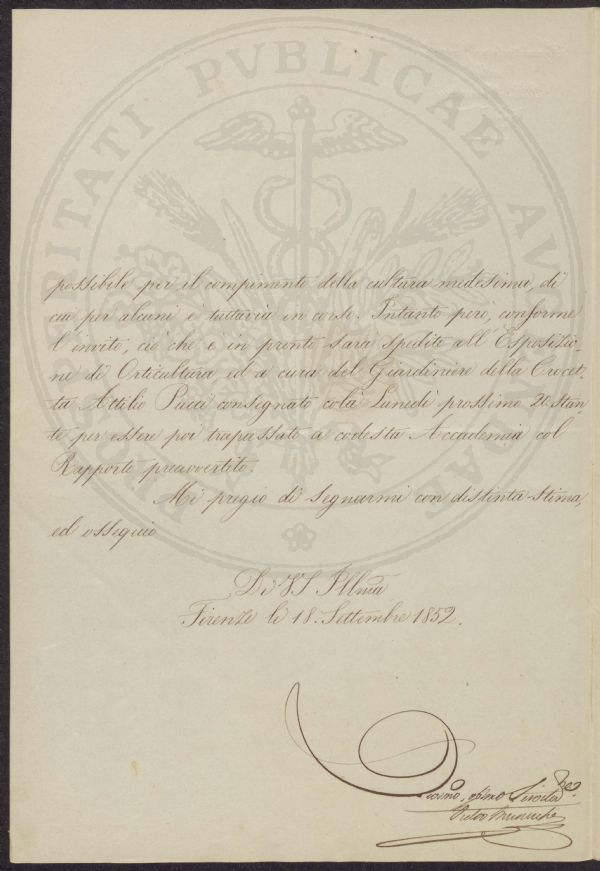 PROSPERITATI PVBLICAE AVGENDAE
possibile per il compimento della cultura medesima, di
cui per alcuni è tuttavia in corso. Intanto però, conforme
l'invito, ciò che è in pronto sarà spedito all'Esposizio-
ne di Orticultura, ed a cura del Giardiniere della Crocet-
ta Attilio Pucci consegnato colà Lunedì prossimo 20 stan-
te per essere poi trapassato a codesta Accademia col
Rapporto preavvertito.
Mi pregio di segnarmi con distinta stima,
ed ossequio
Di VS Illma
Firenze li 18. Settembre 1852.